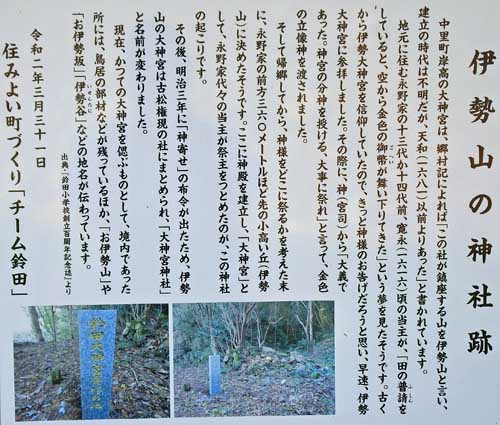 伊勢山の神社跡
中里町岸高の大神宮は、郷村記によれば「この社が鎮座する山を伊勢山と言い、
建立の時代は不明だが、天和（一六八一）以前よりあった」と書かれています。
地元に住む永野家の十三代か十四代前、寛永（一六二六）頃の当主が、「田の普請を
していると、空から金色の御幣が舞い下りてきた」という夢を見たそうです。古く
から伊勢大神宮を信仰していたので、きっと神様のお告げだろうと思い、早速、伊勢
大神宮に参拝しました。その際に、神（宮司）から「大義で
あった。神宮の分神を授ける、大事に祭れ」と言って、金色
の立像神を渡されました。
そして帰郷してから、神様をどこに祭るかを考えた末
に、永野家の前方三六〇メートルほど先の小高い丘（伊勢
山）に決めたそうです。ここに神殿を建立し、「大神宮」と
して、永野家代々の当主が祭主をつとめたのが、この神社
の起こりです。
その後、明治三年に「神寄せ」の布令が出たため、伊勢
山の大神宮は古松権現の社にまとめられ、「大神宮神社」
と名前が変わりました。
現在、かつての大神宮を偲ぶものとして、境内であった
所には、鳥居の部材などが残っているほか、「お伊勢山」や
「お伊勢坂」、「伊勢谷」などの地名が伝わっています。
出典：「鈴田小学校創立百周年記念誌」より
令和二年三月三十一日
住みよい町づくり「チーム鈴田」